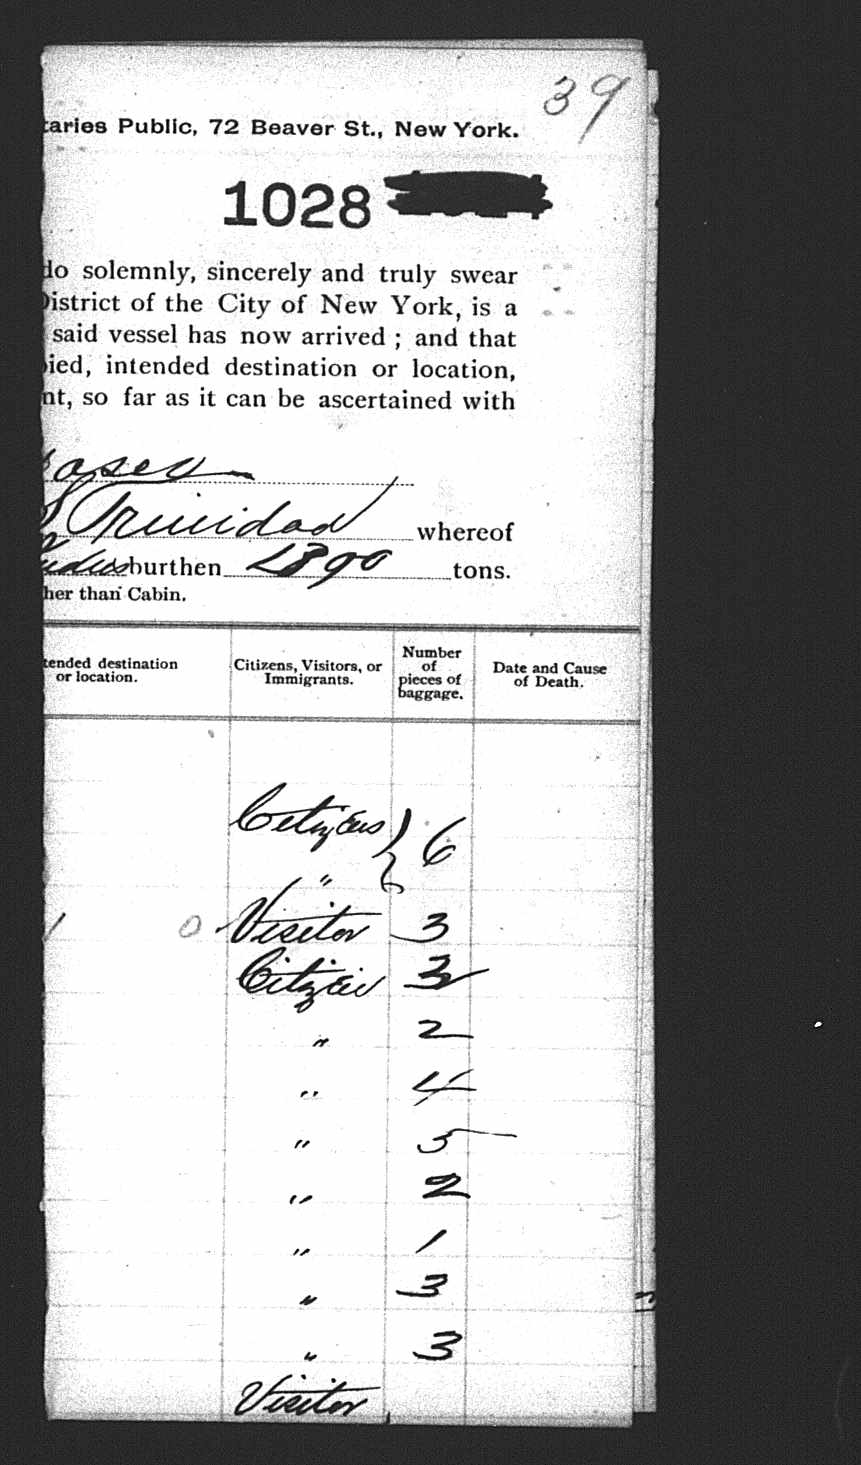 39
taries Public, 72 Beaver St., New York.
1028
do solemnly, sincerely and truly swear
District of the City of New York, is a
said vessel has now arrived ; and that
ied, intended destination or location,
nt, so far as it can be ascertained with
Trinidad whereof
burthen 1890 tons.
her than Cabin.
tended destination or location. Citizens, Visitors, or Immigrants. Number of pieces of baggage. Date and Cause of Death.
Citizens 6
"
1 0 Visitor 3
Citizen 3
" 2
" 4
" 5
" 2
" 1
" 3
" 3
Visitor